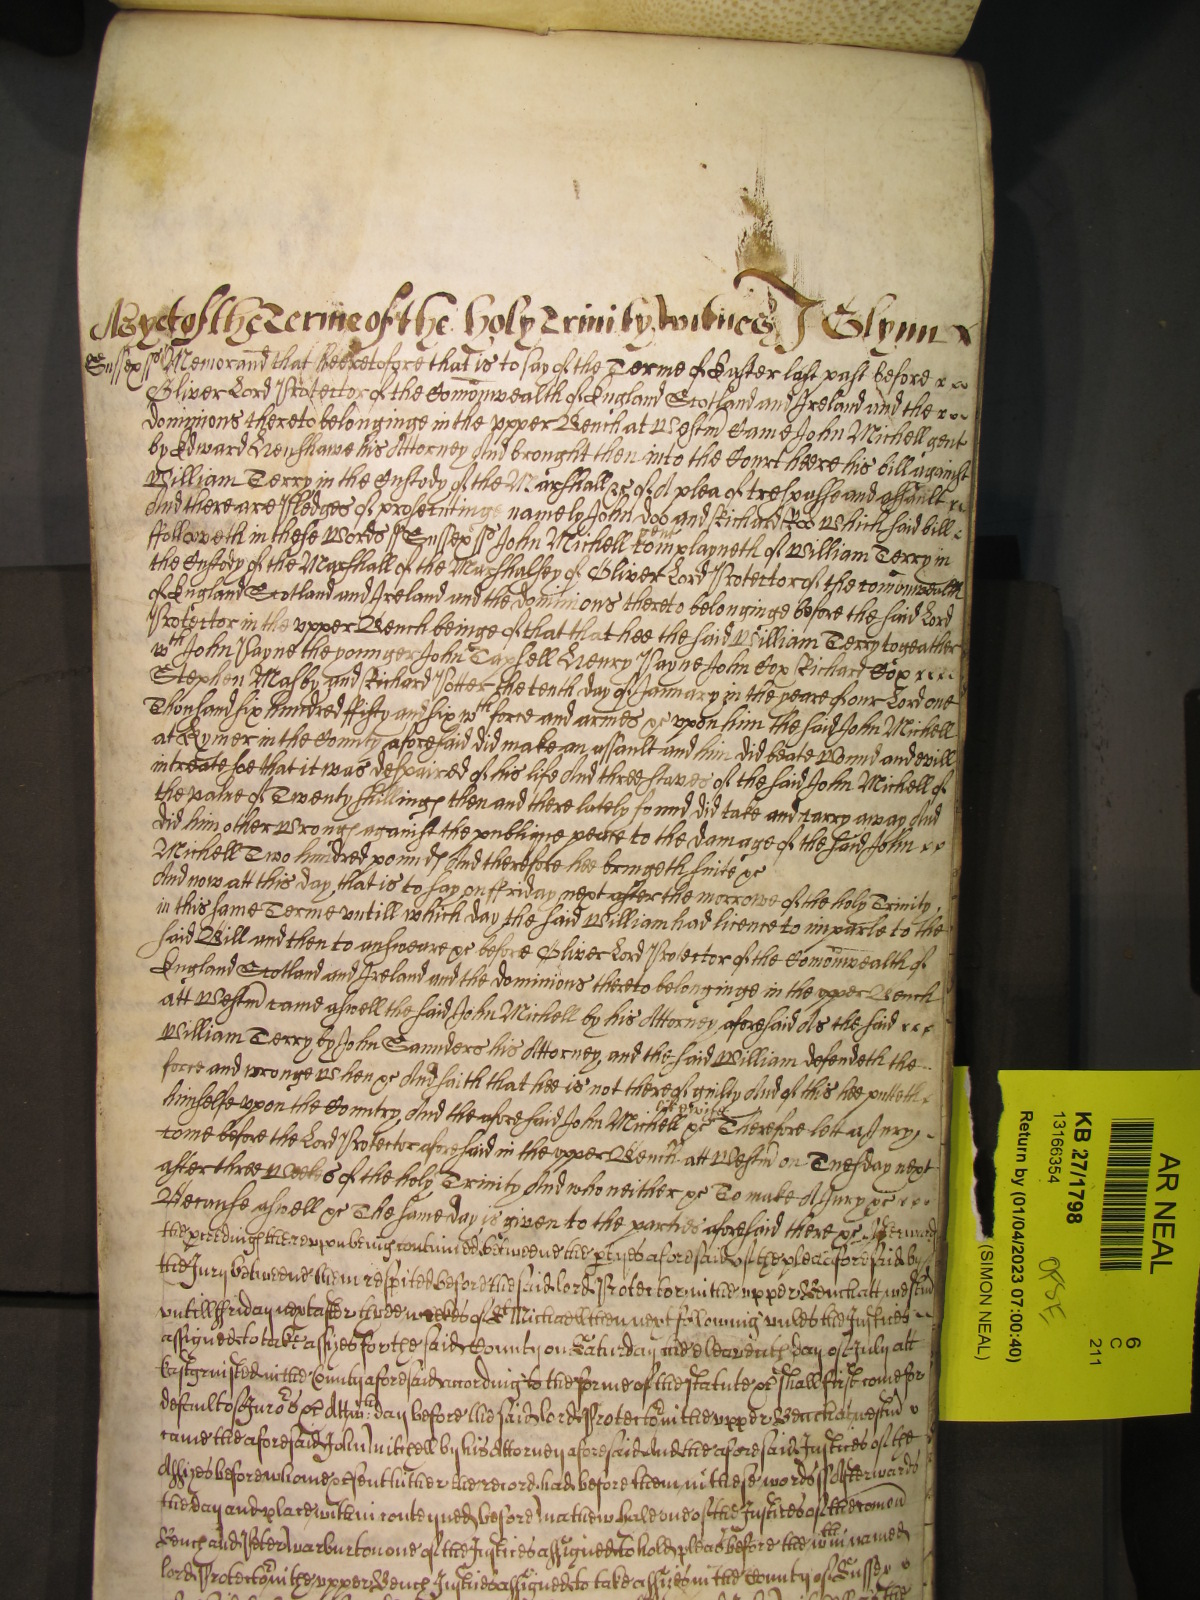 As yet of the Terme of the holy Trinity witnes J Glynn
Sussex ss Memorand that heeretofore that is to say of the Terme of Easter last past before
Oliver Lord Protector of the Comonwealth of England Scotland and Ireland and the
dominions thereto belonginge in the vpper Bench at Westm Came John Michell gent
by Edward Henshawe his Attorney And brought then into the Court heere his bill against
William Terry in the Custody of the Marshall &c of A plea of trespasse and assault
And there are Pledges of prosecutinge namely John Doo and Richard Roo Which said bill
ffolloweth in these Words ss Sussex ss John Michell gent Complayneth of William Terry in
the Custody of the Marshall of the Marshalsey of Oliver Lord Protector of the comonwealth
of England Scotland and Ireland and the dominions thereto belonginge before the said Lord
Protector in the vpper Bench beinge of that that hee the said William Terry togeather
wth John Payne the younger John Tapsell Henry Payne John Cox Richard Cox
Stephen Masby and Richard Potter the tenth day of January in the yeare of our Lord one
Thousand six hundred ffifty and six wth force and armes &c vpon him the said John Michell
at Kymer in the County aforesaid did make an assault and him did beate Wound and evill
intreate soe that it was despaired of his life And three staves of the said John Michell of
the value of Twenty shillings then and there lately found did take and carry away And
did him other Wrongs against the publique peace to the damage of the said John
Michell Two hundred pounds And therefore hee bringeth suite &c
And now att this day, that is to say on ffriday next after the morrowe of the holy Trinity
in this same Terme vntill which day the said William had licence to imparle to the
said Bill and then to answeare &c before Oliver Lord Protector of the Comonwealth of
England Scotland and Ireland and the dominions thereto belonginge in the vpper Bench
att Westm came aswell the said John Michell by his Attorney aforesaid As the said
William Terry by John Saunders his Attorney and the said William defendeth the
force and wronge When &c And saith that hee is not thereof guilty And of this hee putteth
himselfe vpon the Country, And the aforesaid John Michell likewise &c Therefore lett a Jury
come before the Lord Protector aforesaid in the vpper Bench att Westm on Tuesday next
after three Weekes of the holy Trinity And who neither &c To make A Jury &c
Because aswell &c The same day is given to the parties aforesaid there &c Afterwards
the proceedings therevpon being continued betweene the partyes aforesaid of the plea aforesaid by
the Jury betweene them respited before the said Lord Protector in the vpper Bench att westm
vntill ffriday next after three weekes of St Michaell then next following vnles the Justices
assigned to take assizes for the said County on Saturday the eleaventh day of July att
Eastgrinsted in the County aforesaid according to the forme of the statute &c shall first come for
default of Jurors &c Att wch day before the said Lord Protector in the vpper Bench at westm
came the aforesaid John Michell by his Attorney aforesaid And the aforesaid Justices of the
Assizes before whome &c sent hither their record had before them in these words ss Afterwards
the day and place within conteyned before Mathew Hale one of the Justices of the comon
Bench and Peter Warburton one of the Justices assigned to hold pleas before the wthin named
Lord Protector in the vpper Bench Justices assigned to take assizes in the County of Sussex
AR NEAL
6
C
211
KB 27/1798
13166354
Return by (01/04/2023 07:00:40)
(SIMON NEAL)